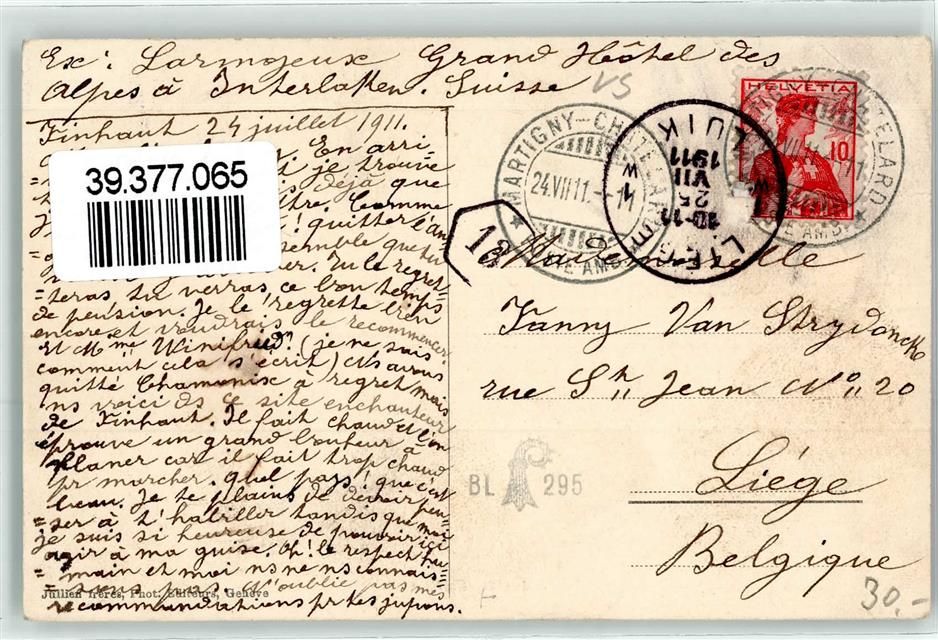 Ex: Larmojeux Grand Hôtel des
Alpes à Interlaken. Suisse
VS
Finhaut 24 juillet 1911.
En arri=
=
t je trouve
déjà que
tre. Comme
! quitter l'an
semble que tu
er. Tu le regret=
=teras tu verras ce bon temps
de pension. Je le regrette bien
encore et voudrais le recommencer.
Et Mme Winifred? (je ne sais
comment cela s'écrit) Ns avons
quitté Chamonix à regret mais
ns voici ds ce site enchanteur
de Finhaut. Il fait chaud et l'on
éprouve un grand bonheur à
flaner car il fait trop chaud
pr marcher. Quel pays! que c'est
beau. Je te plains de devoir pen=
=ser à t'habiller tandis que moi
je suis si heureuse de pouvoir ici
agir à ma guise. Oh! le respect hu=
=main et moi ns ne ns connais=
=sons pas. N'oublie pas mes
recommandations pr tes jupons.
Jullien frères, Phot. Editeurs, Genève
39.377.065
MARTIGNY-CHATELARD
24.VII 11.
AMB.
LUIK
1911
VII
25
10-11
LIEGE
HELVETIA
10
CHATELARD
AMB.
1a
Mademoiselle
Fanny Van Strydonck
rue St Jean No 20
Liége
Belgique
BL 295
30.-